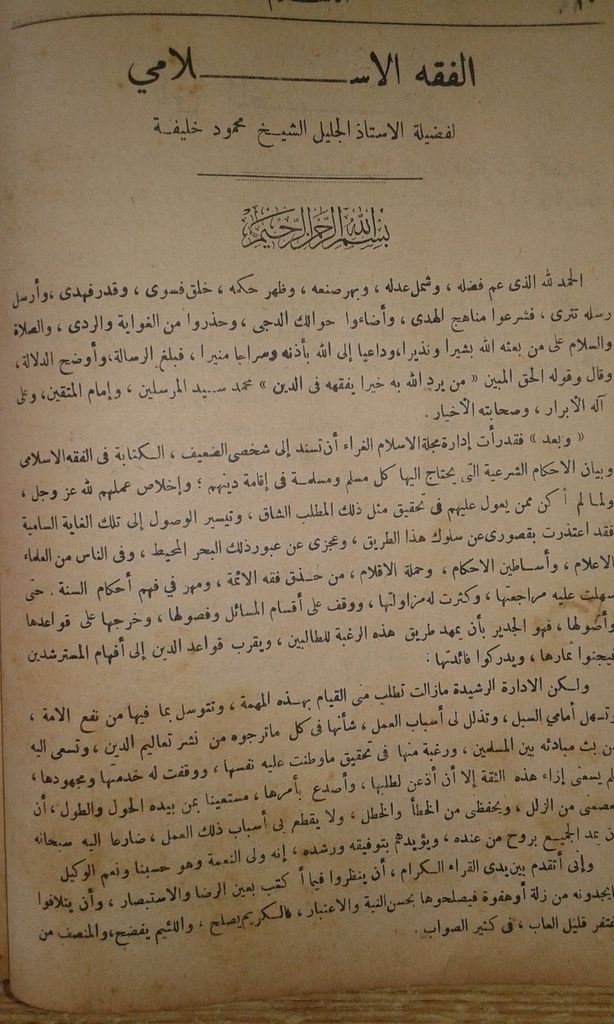 الفقه الاسـلامي
لفضيلة الاستاذ الجليل الشيخ محمود خليفة
بسم الله الرحمن الرحيم
الحمد لله الذى عم فضله ، وشمل عدله ، وبهر صنعه ، وظهر حكمه ، خلق فسوى ، وقدر فهدى ، وأرسل
رسله تترى ، فشرعوا مناهج الهدى ، وأضاءوا حوالك الدجى ، وحذروا من الغواية والردى ، والصلاة
والسلام على من بعثه الله بشيرا ونذيرا، وداعيا إلى الله بأذنه وسراجا منيرا ، فبلغ الرسالة، وأوضح الدلالة،
وقال وقوله الحق المبين « من يرد الله به خيرا يفقهه فى الدين » محمد سـيد المرسلين ، وإمام المتقين، وعلى
آله الأبرار ، وصحابته الأخيار .
« وبعد » فقد رأت إدارة مجلة الاسلام الغراء أن تسند إلى شخصى الضعيف ، الكتابة فى الفقه الاسلامى
وبيان الاحكام الشرعية التى يحتاج اليها كل مسلم ومسلمة فى إقامة دينهم ؛ وإخلاص عملهم لله عز وجل ،
ولما لم أكن ممن يعول عليهم فى تحقيق مثل ذلك المطلب الشاق ، وتيسير الوصول إلى تلك الغاية السامية
فقد اعتذرت بقصورى عن سلوك هذا الطريق ، وعجزى عن عبور ذلك البحر المحيط ، وفى الناس من العلماء
الاعلام ، وأساطين الاحكام ، وحملة الاقلام ، من حـذق فقه الائمة ، ومهر فى فهم أحكام السنة . حتى
سهلت عليه مراجعتها ، وكثرت له مزاولتها ، ووقف على أقسام المسائل وفصولها ، وخرجها على قواعدها
وأصولها ، فهو الجدير بأن يمهد طريق هذه الرغبة للطالبين ، ويقرب قواعد الدين إلى أفهام المسترشدين
فيجنوا ثمارها ، ويدركوا فائدتها .
ولـكن الادارة الرشيدة مازالت تطلب منى القيام بهـذه المهمة ، وتتوسل بما فيها من نفع الامة ،
وتسهل أمامى السبل ، وتذلل لى أسباب العمل ، شأنها فى كل ماترجوه من نشر تعاليم الدين ، وتسعى اليه
من بث مبادئه بين المسلمين ، ورغبة منها فى تحقيق ماوطنت عليه نفسها ، ووقفت له خدمتها ومجهودها ،
لم يسعنى إزاء هذه الثقة إلا أن أذعن لطلبها ، وأصدع بأمرها ، مستعينا بمن بيده الحول والطول ، أن
يعصمنى من الزلل ، ويحفظنى من الخطأ والخطل ، ولا يقطع بى أسباب ذلك العمل ، ضارعا اليه سبحانه
أن يمد الجميـع بروح من عنده ، ويؤيدهم بتوفيقه ورشده ، إنه ولى النعمة وهو حسبنا ونعم الوكيل
وإنى أتقدم بين يدى القراء الكرام ، أن ينظروا فيما أكتب بعين الرضا والاستبصار ، وأن يتلافوا
مايجدونه من زلة أوهفوة فيصلحوها بحسن النية والاعتبار ، فالـكريم يصلح ، واللئيم يفضح، والمنصف من
يغتفر قليل العاب ، فى كثير الصواب .